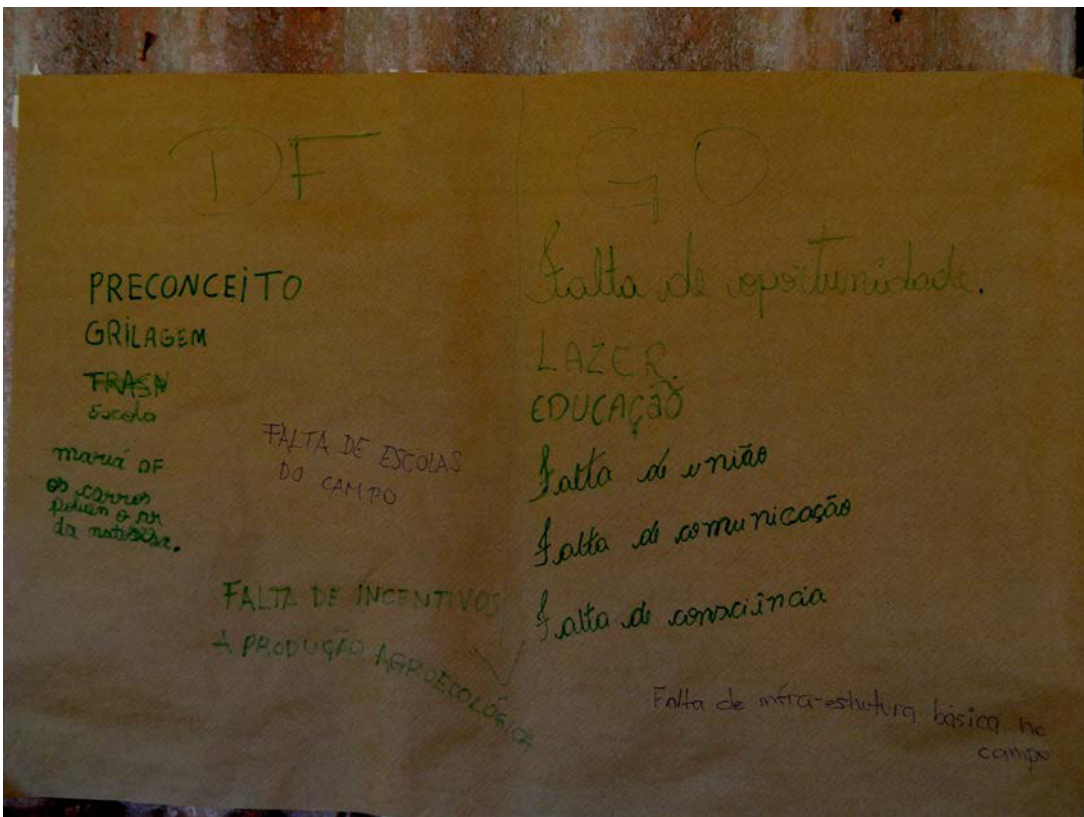 DF
PRECONCEITO
GRILAGEM
TRASN
Escola
FALTA DE ESCOLAS
DO CAMPO
maria DF
os carros
poluen o ar
da
FALTA DE INCENTIVOS
A PRODUÇÃO AGROECOLÓGICA
GO
Falta de oportunidade.
LAZER.
EDUCAÇÃO
Falta de união
Falta de comunicação
Falta de consciência
Falta de infra-estrutura básica no
campo